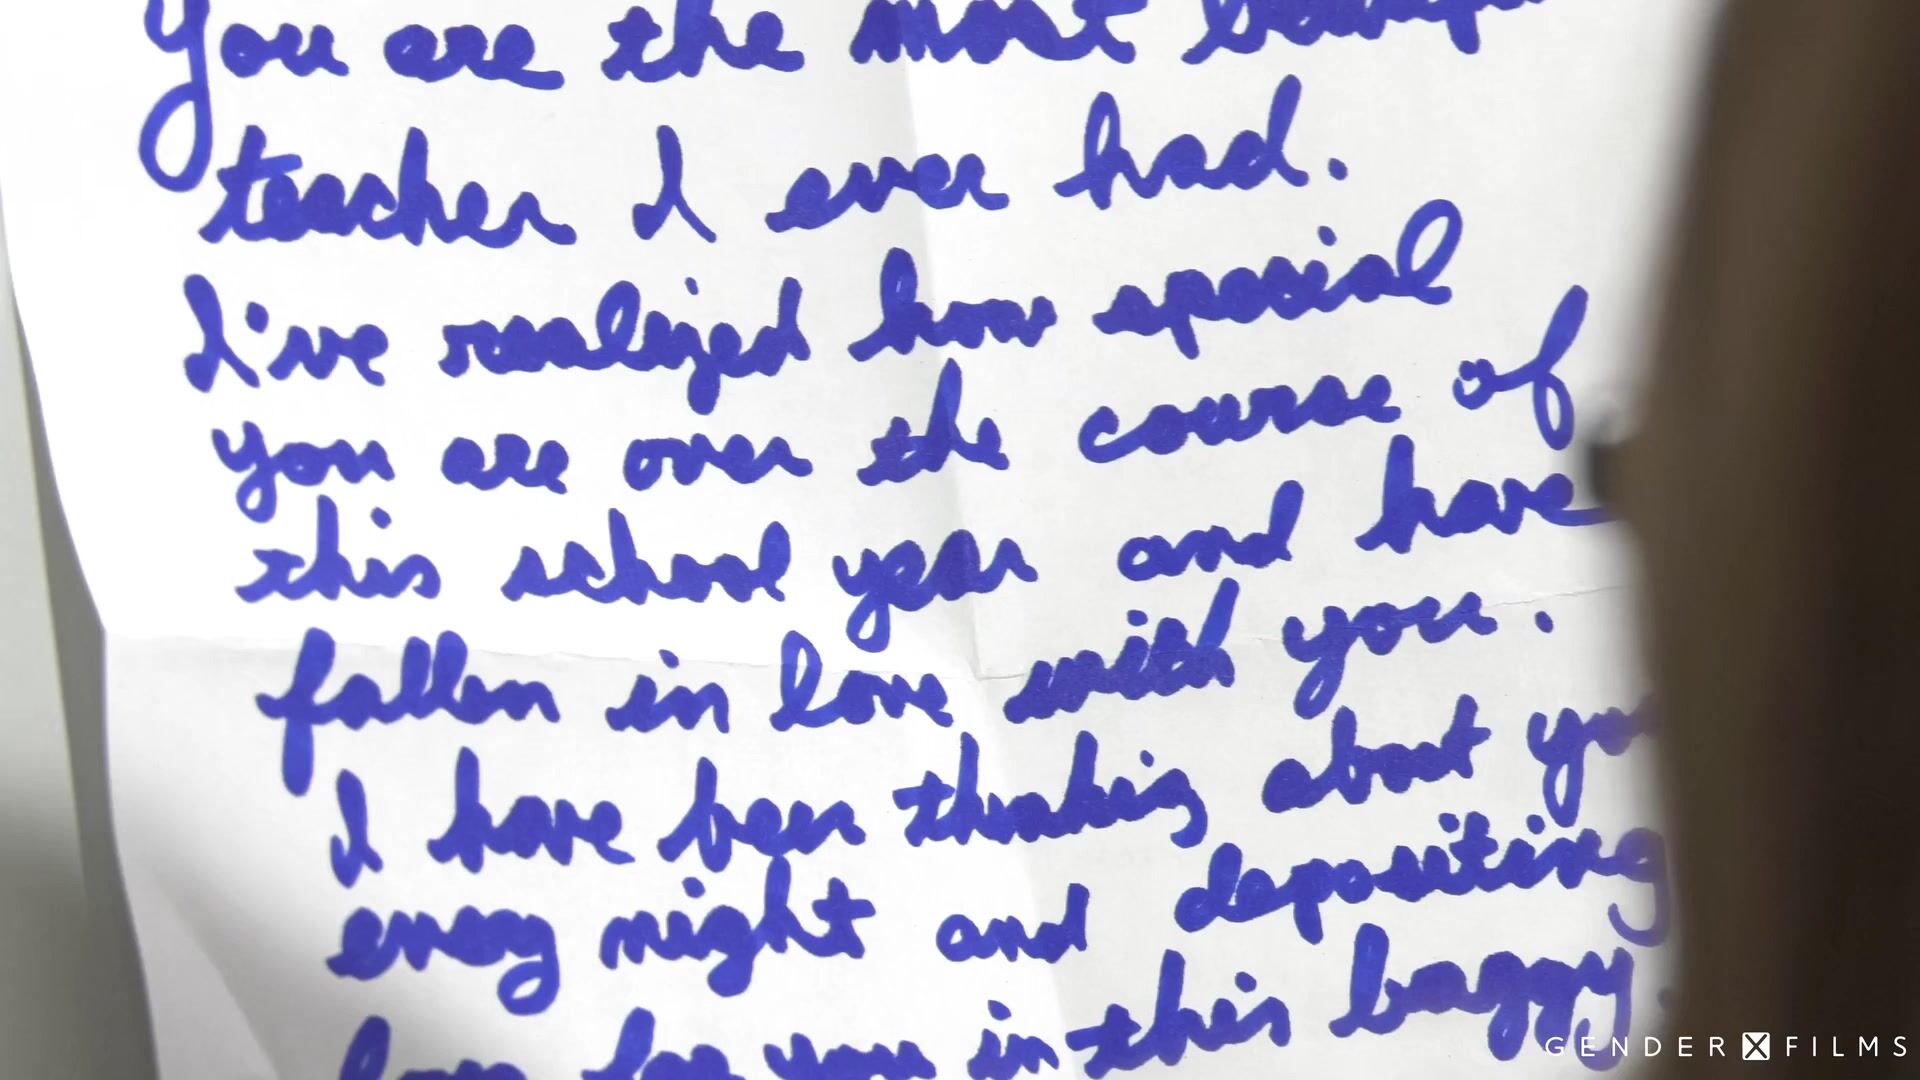 You are the most
teacher I ever had.
I've realized how special
you are over the course of
this school year and have
fallen in love with you.
I have been thinking about you
every night and depositing
love for you in this baggy.
GENDER X FILMS